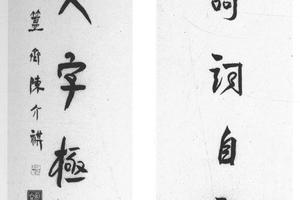 詞自
字極
簠齋陳介祺